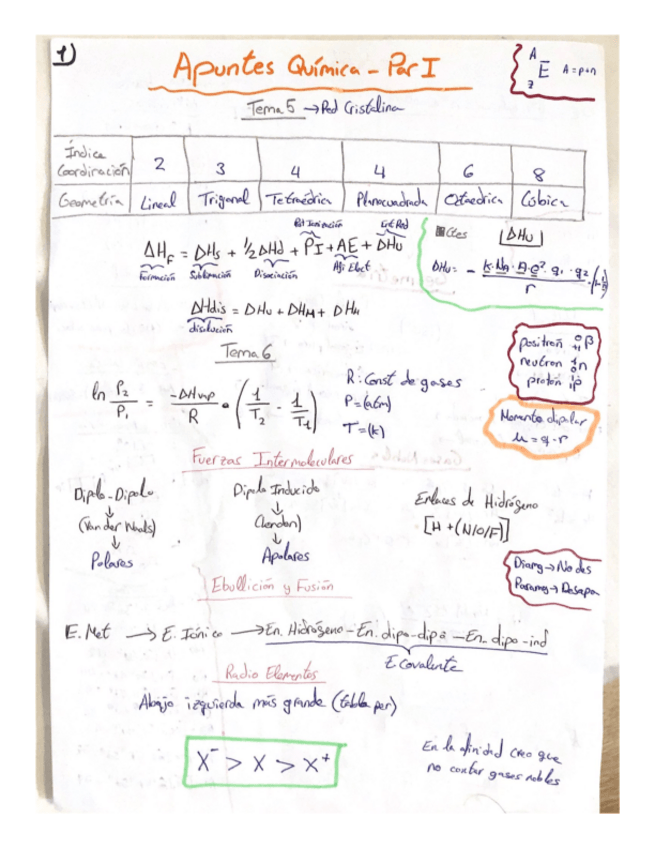 1)
Apuntes Química - Par I
A
E A = p+n
z
Tema 5 → Red Cristalina
Índice Coordinación 2 3 4 4 6 8
Geometría Lineal Trigonal Tetraédrica Planocuadrada Octaedrica Cúbica
Pot Ionización Ent Red
ΔH_F = ΔHs + 1/2 ΔHd + PI + AE + ΔHu
Formación Sublimación Disociación Afi Elect
Ctes ΔHu
ΔHu = - K·NA·A·e²·q1·q2 / r
ΔHdis = ΔHu + ΔHH + ΔHH
disolución
Tema 6
positron β
neutron n
protón p
ln P2/P1 = -ΔHvap/R · (1/T2 - 1/T1)
R: Const de gases
P = (atm)
T = (k)
Momento dipolar
μ = q · r
Fuerzas Intermoleculares
Dipolo-Dipolo
↓
(Van der Waals)
↓
Polares
Dipolo Inducido
↓
(London)
↓
Apolares
Enlaces de Hidrógeno
[H + (N/O/F)]
Diamg → No des
Paramg → Desapa
Ebullición y Fusión
E. Met → E. Iónico → En. Hidrógeno - En. dipo-dipo - En. dipo-ind
E covalente
Radio Elementos
Abajo izquierda más grande (tabla per)
X⁻ > X > X⁺
En la afinidad creo que
no contar gases nobles